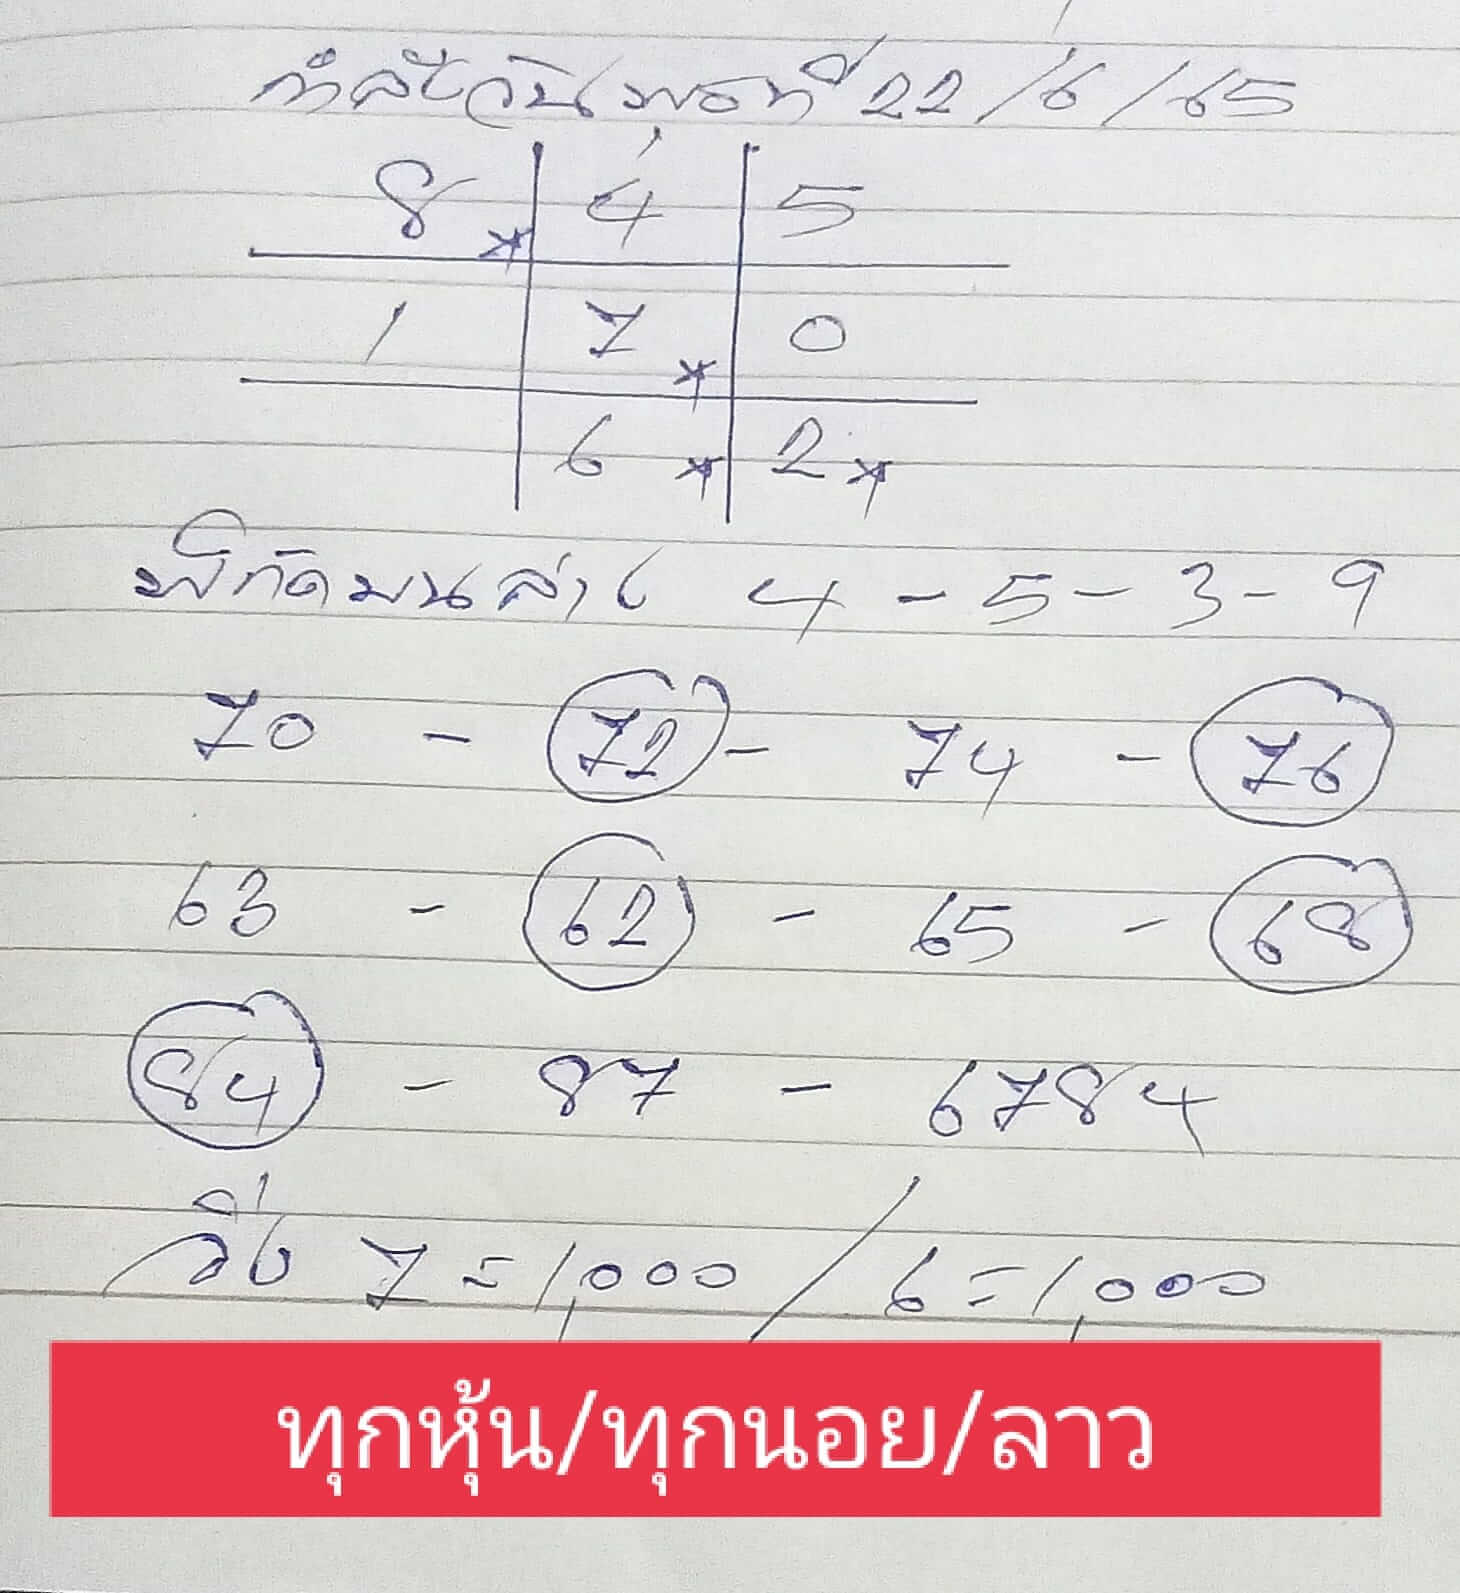 กำลังวันพุธที่ 22/6/65
8* 4 5
1 7* 0
6* 2*
พิกัดบนล่าง 4-5-3-9
70 - 72 - 74 - 76
63 - 62 - 65 - 68
84 - 87 - 6784
วิ่ง 7=1,000 / 6=1,000
ทุกหุ้น/ทุกนอย/ลาว